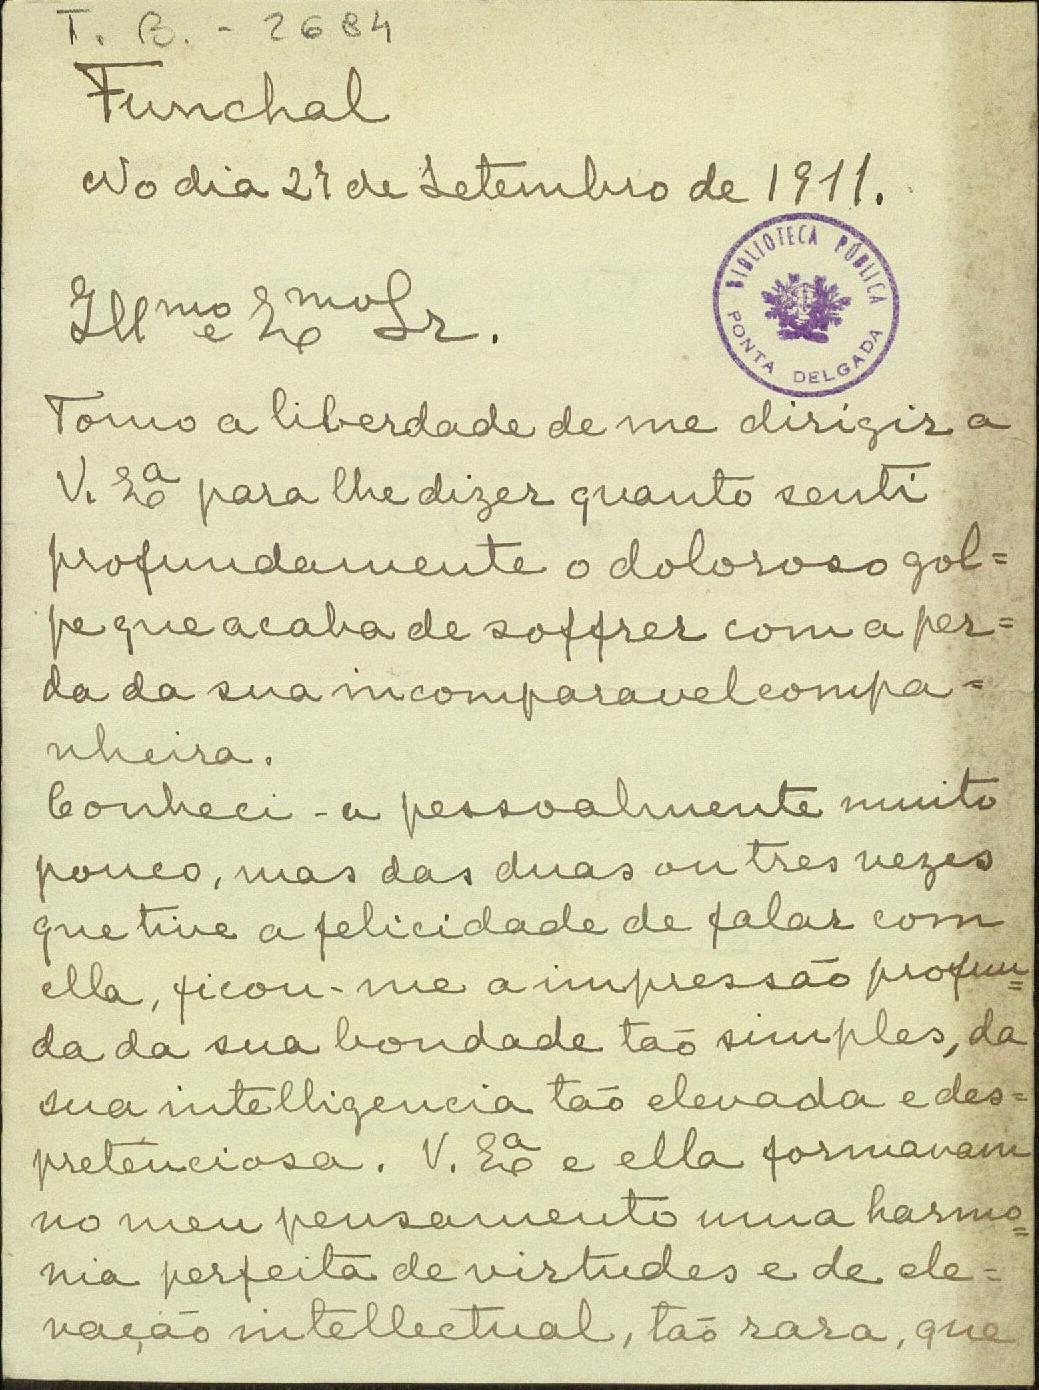 T. B. - 2684
Funchal
No dia 27 de Setembro de 1911.
BIBLIOTECA PÚBLICA
PONTA DELGADA
Illmo e Exmo Sr.
Tomo a liberdade de me dirigir a
V. Exa para lhe dizer quanto senti
profundamente o doloroso gol=
pe que acaba de soffrer com a per=
da da sua incomparavel compa=
nheira.
Conheci-a pessoalmente muito
pouco, mas das duas ou tres vezes
que tive a felicidade de falar com
ella, ficou-me a impressão profun=
da da sua bondade tão simples, da
sua intelligencia tão elevada e des=
pretenciosa. V. Exa e ella formavam
no meu pensamento uma harmo=
nia perfeita de virtudes e de ele=
vação intellectual, tão rara, que